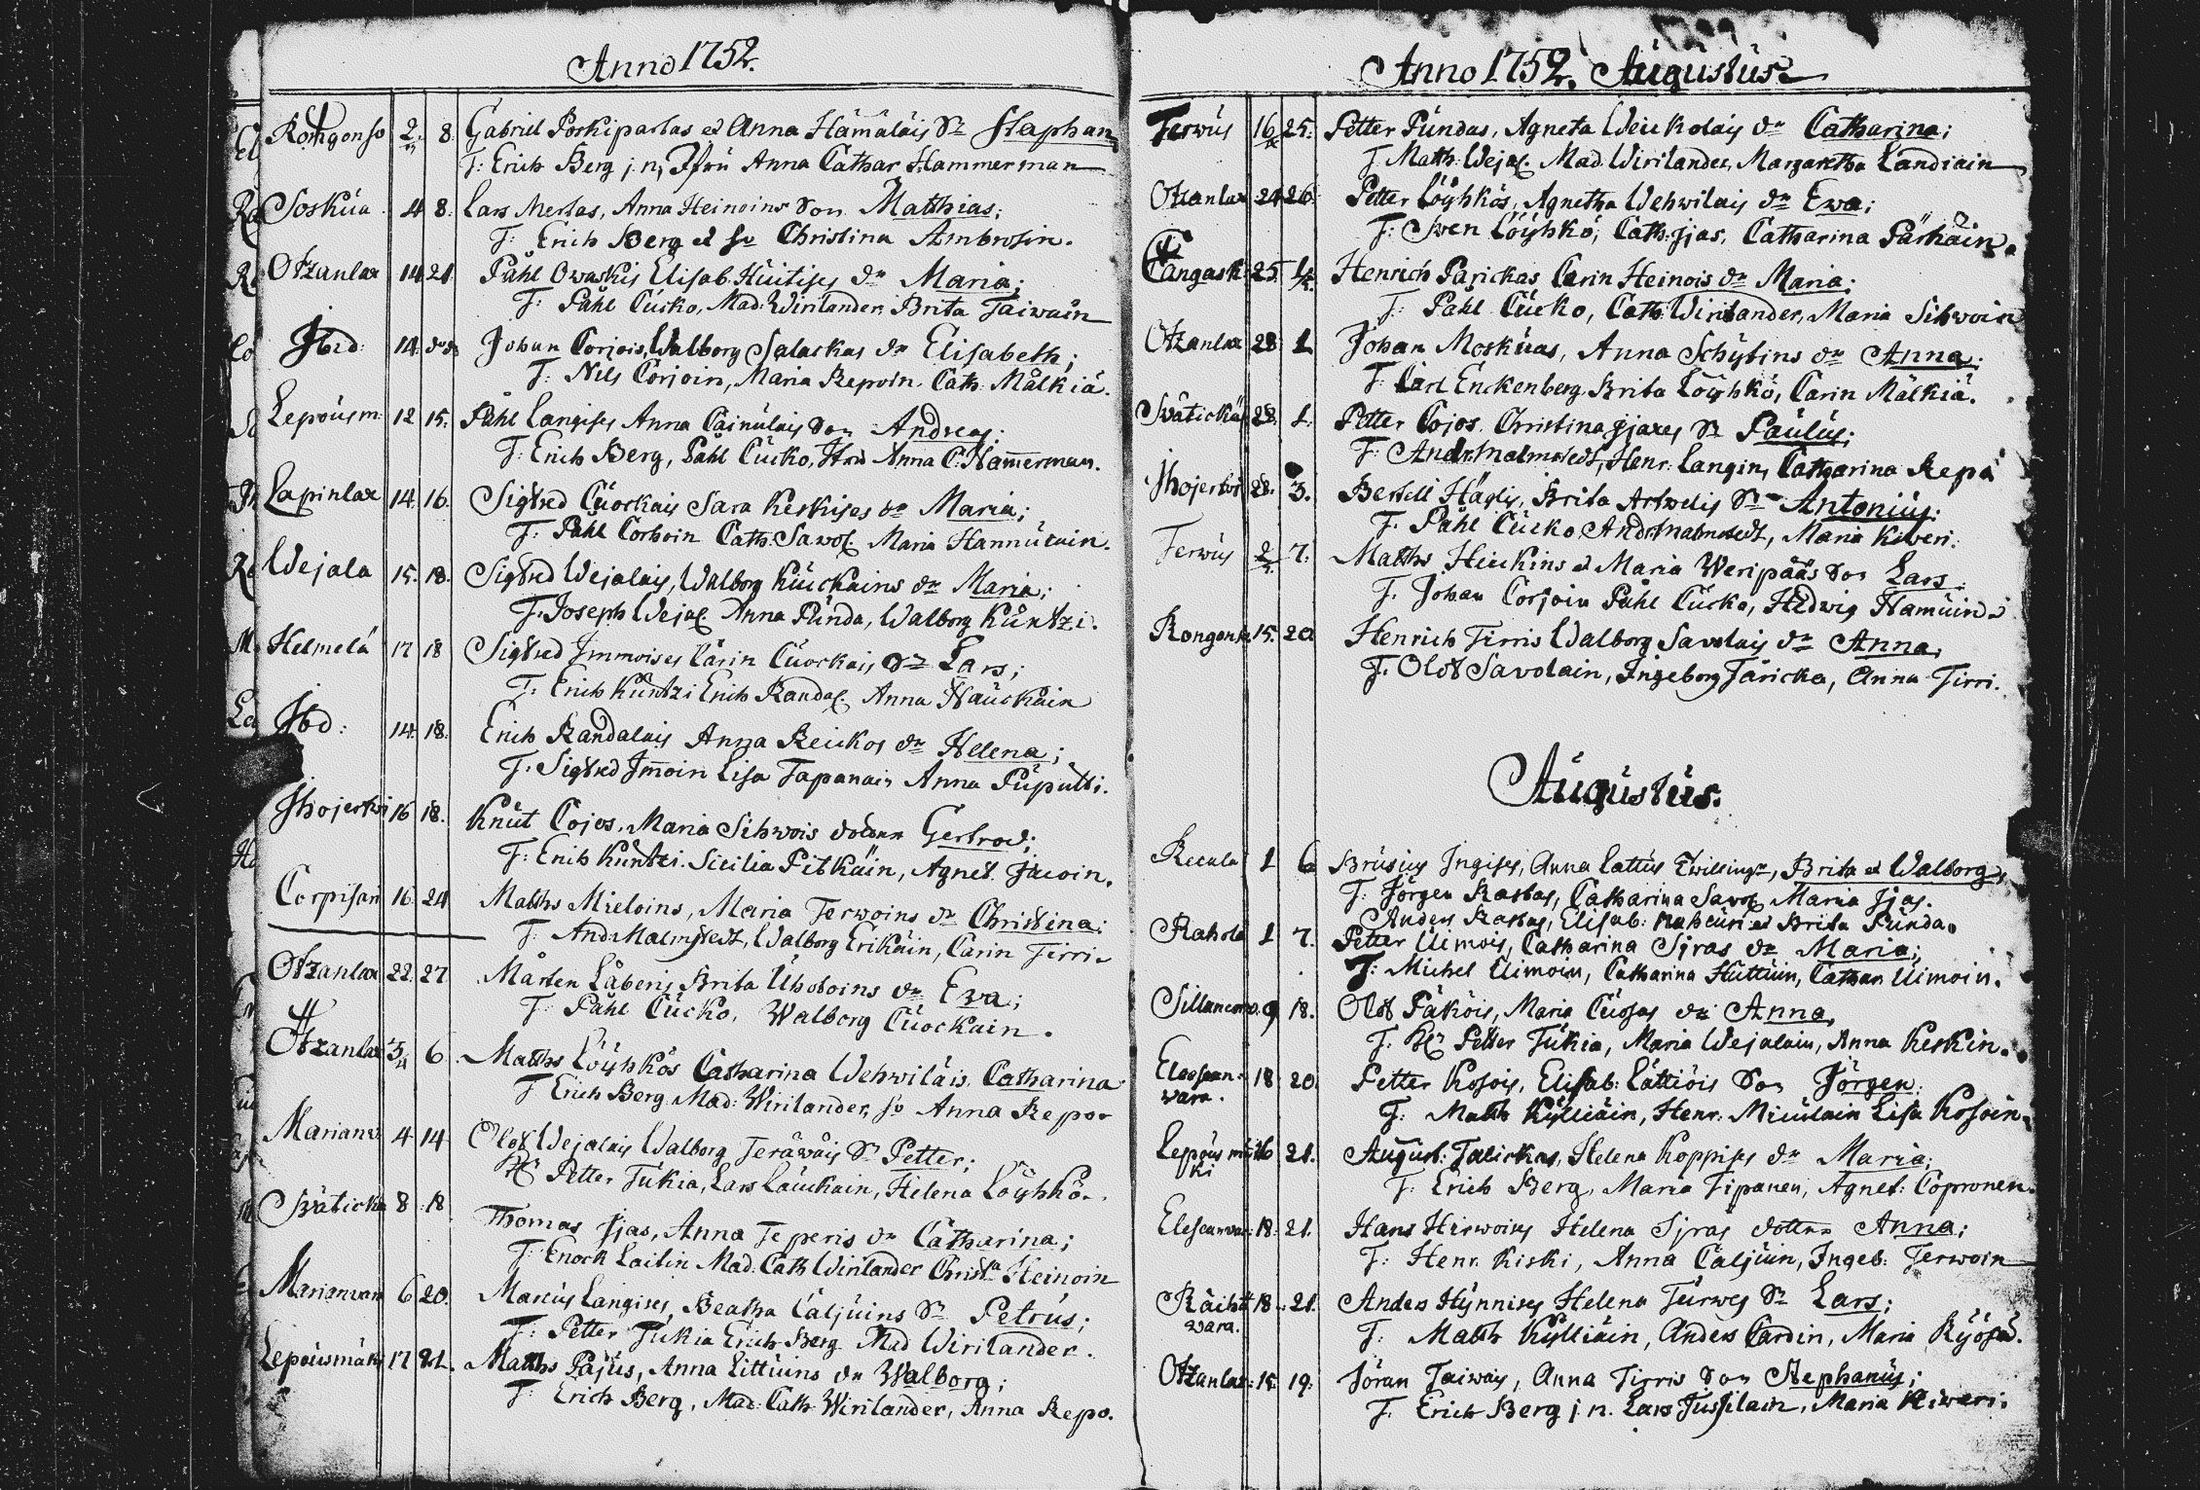 Anno 1752.
Rongonso 2 8. Gabriel Porkiparlas et Anna Hämäläis Sn Staphan
T: Erich Berg j.n, Jfru Anna Cathar Hammerman
Soskua 4 8. Lars Mertas, Anna Heinoins Son Matthias;
T: Erich Berg et fr Christina Ambrosin.
Otzanlax 14 21 Påhl Owaskis Elisab. Huitises dr Maria;
T: Påhl Cucko, Mad: Wirilander, Brita Taiwain
Ibd: 14. Johan Corjois, Walborg Salackas dr Elisabeth;
T: Nils Corjoin, Maria Repoin. Cath: Målkiä.
Lepousm: 12 15. Påhl Langises Anna Cainulais Son Andreas;
T: Erich Berg, Påhl Cucko, Jfru Anna C: Hammerman.
Lapinlax 14 16. Sigfred Cuockais Sara Keskises dr Maria;
T: Påhl Corhoin Cath: Savol. Maria Hannucain.
Wejala 15. 18. Sigfred Wejalais, Walborg Kuickains dr Maria;
T: Joseph Wejal. Anna Punda, Walborg Kuntzi.
Helmelä 17 18 Sigfred Immoises Carin Cuockais Sn Lars;
T: Erich Kuntzi Erich Randal. Anna Hauckain
Ibd: 14 18. Erich Randalais Anna Reickos dr Helena;
T: Sigfred Immoin Lisa Tapanain Anna Puputti.
Ihojerwi 16 18. Knut Cojos, Maria Sihwois dotter Gertrod;
T: Erich Kuntzi. Sicilia Pitkäin, Agnet. Jacoin.
Corpisari 16. 24 Matths Mieloins, Maria Terwoins dr Christina;
T: And: Malmstedt, Walborg Erikäin, Carin Tirri
Otzanlax 22. 27 Mårten Låberis Brita Uhotoins dr Ewa;
T: Påhl Cucko, Walborg Cuockain.
Otzanlax 3 6. Matths Löyhkös Catharina Wehwiläis. Catharina
T Erich Berg. Mad: Wirilander, fr Anna Repo
Marianw 4 14 Olof Wejalais Walborg Teräwäis Sn Petter;
Petter Tukia, Lars Lauckain, Helena Löyhkö.
Swäticka 8 18 Thomas Jjas, Anna Teperis dr Catharina;
T: Enock Laitin Mad: Cath Wirilander Christa Heinoin
Marianwan 6 20. Marcus Langises, Beatha Caljuins Sn Petrus;
T: Petter Tukia Erich Berg Mad Wirilander.
Lepousmäki 17 21. Matths Pajus, Anna Littuins dr Walborg;
T: Erich Berg, Mad: Cath: Wirilander, Anna Repo.
Anno 1752. Augustus
Terwus 16 25. Petter Pundas, Agneta Weickolais dr Catharina;
T Matth: Wejal. Mad. Wirilander, Margaretha Landiain
Otzanlax 24 26. Petter Löyhkös, Agnetha Wehwilais dr Ewa;
T: Swen Löyhkö, Cath: Jjas, Catharina Pärhäin.
Cangask: 25 Henrich Parickas Carin Heinois dr Maria;
T: Påhl Cucko, Cath: Wirilander, Maria Sihwoin
Otzanlax 28 1. Johan Moskuas, Anna Schytins dr Anna;
T: Carl Enckenberg Brita Löyhkö, Carin Målkiä.
Swätickä 28. 1. Petter Cojos. Christina Jjaxes Sn Paulus;
T: And: Malmstedt, Henr: Langin, Catharina Repa
Ihojerwi 28. 3. Bertell Häglis, Brita Artwelis Sn Antonius;
T: Påhl Cucko, And: Malmstedt, Maria Kiweri.
Terwus 2 7. Matths Heickins et Maria Weripääs Son Lars;
T: Johan Corjoin Påhl Cucko, Hedwig Hamuin
Rongons 15. 20 Henrich Tirris Walborg Savolais dr Anna,
T: Olof Savolain, Ingeborg Taricka, Anna Tirri.
Augustus.
Recula 1 6 Brusius Ingises, Anna Lattus Twillingr, Brita et Walborg,
T: Jörgen Rastas, Catharina Savol. Maria Jjas.
Anders Rastas, Elisab: et Brita Punda.
Rahola 1 7. Petter Uimois, Catharina Sjras dr Maria;
T: Michel Uimoin, Catharina Huttuin, Cathar. Uimoin.
Sillancorw. 9 18. Olof Päköis, Maria Cuosas dr Anna,
T: Petter Tukia, Maria Wejalain, Anna Keskin.
Eloscan-
wara. 18 20. Petter Kosois, Elisab: Lättiöis Son Jörgen.
T: Matth Kylliäin, Henr: Miculain Lisa Kosoin.
Lepous mä
ki 16 21. August: Talickas, Helena Koppises dr Maria;
T: Erich Berg, Maria Tipanen, Agnet: Copronen.
Elescanwar: 18. 21. Hans Hirwoises Helena Sjras dotter Anna;
T: Henr Kiski, Anna Caljuin, Ingeb: Terwoin
Räihä
wara. 18. 21. Anders Hynnises Helena Turwes Sn Lars;
T: Matth Kylliäin, Anders Cardin, Maria Ryösä.
Otzanlax: 15 19. Jöran Taiwas, Anna Tirris Son Stephanus;
T: Erich Berg j.n. Lars Jussilain, Maria Kiweri.